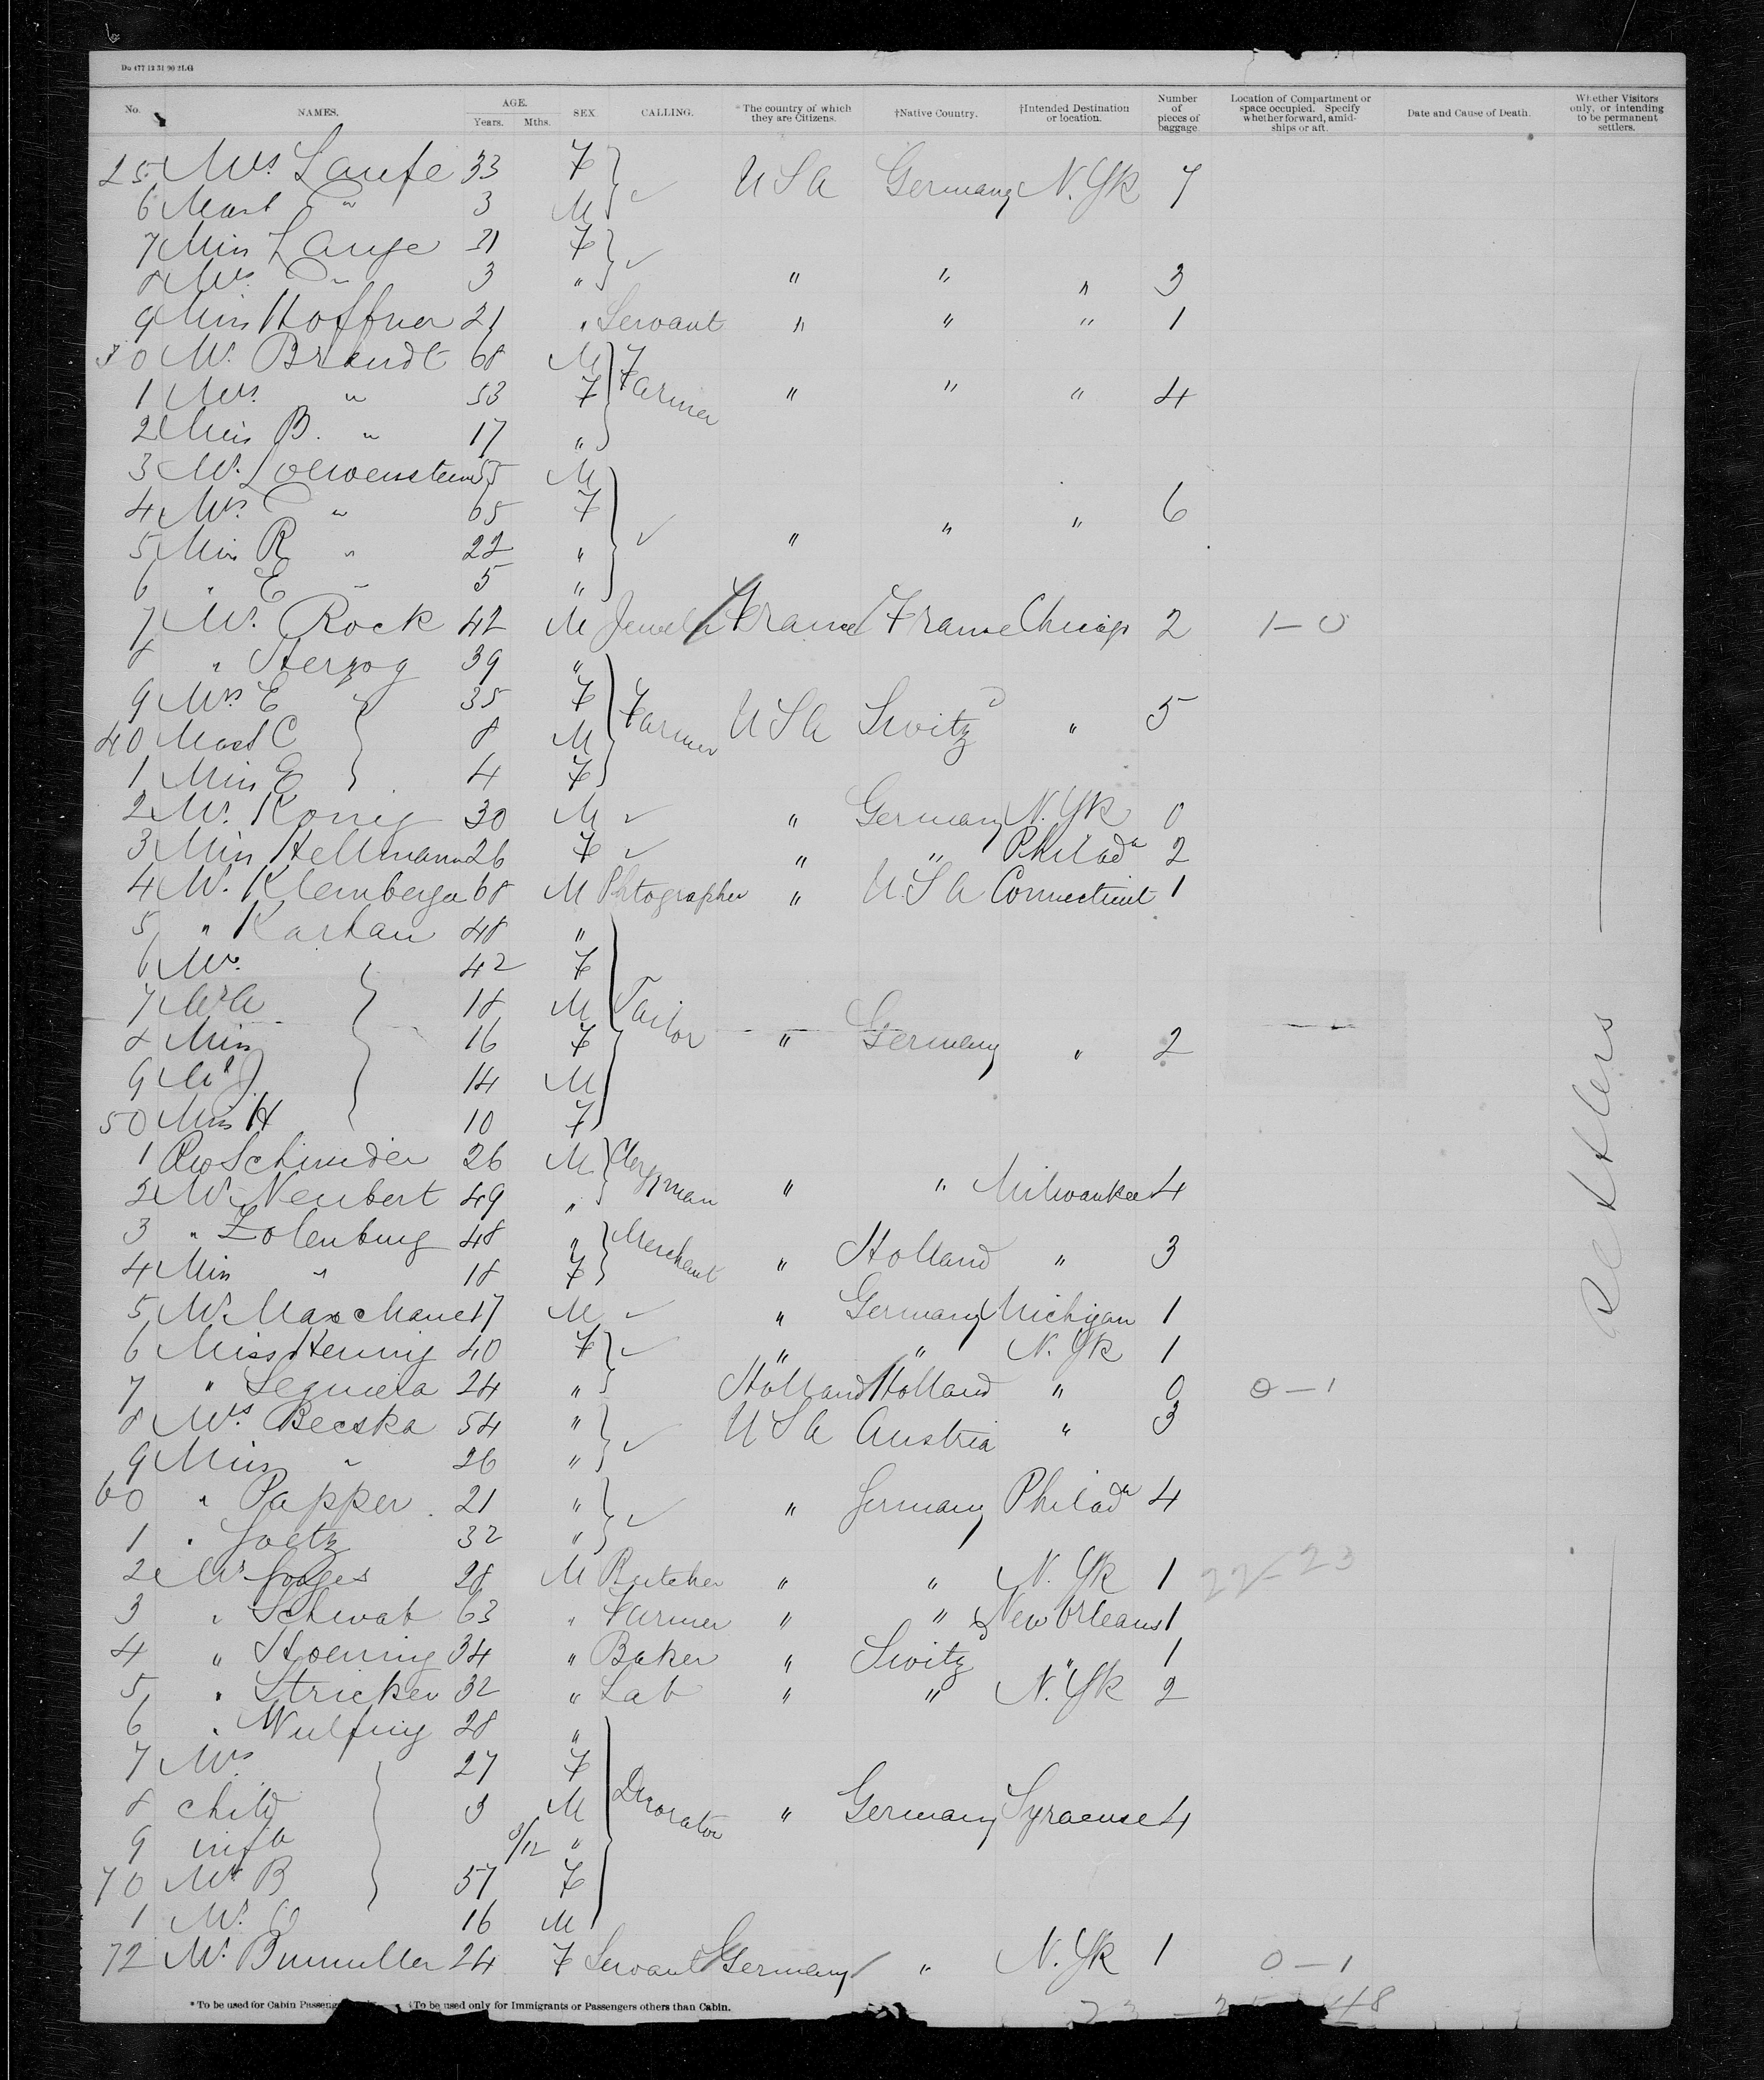 Do 477 12 31 90 2LG
No. NAMES. AGE. Years. Mths. SEX CALLING. *The country of which they are Citizens. †Native Country. †Intended Destination or location. Number of pieces of baggage Location of Compartment or space occupied. Specify whether forward, amid-ships or aft. Date and Cause of Death. Whether Visitors only, or intending to be permanent settlers.
25 Mrs Laufe 33 F } ✓ U S A Germany N.Yk 7
6 Mast " 3 M
7 Miss Lange 31 F } ✓
8 " 3 " " " " 3
9 Miss Hoffner 21 " Servant " " " 1
30 Mr. Brandt 68 M } Farmer
1 Mrs. " 53 F " " " 4
2 Miss B. " 17 "
3 Mr. Loewenstein 55 M }
4 Mrs. " 65 F ✓ " " " 6
5 Miss R " 22 "
6 " E " 5 "
7 Mr. Rock 42 M Jeweler France France Chicago 2 1-0
8 " Herzog 39 " }
9 Mrs E " 35 F Farmer U S A Switzd " 5
40 Mast C 8 M
1 Miss E 4 F
2 Mr. Konig 30 M ✓ " Germany N.Yk 0
3 Miss Hellmann 26 F ✓ " " Philada 2
4 Mr. Kleinberger 68 M Phtographer " U S A Connecticut 1
5 " Karhan 48 " }
6 Mrs. 42 F
7 Mr A 18 M Tailor
8 Miss 16 F " Germany " 2
9 Mr J 14 M
50 Miss H 10 F
1 Rev Schneider 26 M } Clergyman
2 Mr. Neubert 49 " " " Milwaukee 4
3 " Zolenburg 48 " } Merchant
4 Miss " 18 F " Holland " 3
5 Mr. Max 17 M ✓ " Germany Michigan 1
6 Miss Hennig 40 F } ✓ " " N.Yk 1
7 " Sequiera 24 " Holland Holland " 0 0-1
8 Mrs. Becska 54 " } ✓ U S A Austria " 3
9 Miss " 26 "
60 " Papper 21 " } ✓ " Germany Philada 4
1 " Goetz 32 "
2 Mr 28 M Butcher " " N.Yk 1 22-23
3 " Schwab 63 " Farmer " " New Orleans 1
4 " Hoenning 34 " Baker " Switz " 1
5 " Stricker 32 " Lab " " N.Yk 2
6 " Wulfing 28 " }
7 Mrs 27 F
8 child 3 M Decorator " Germany Syracuse 4
9 infa /12 "
70 B 57 F
1 Mr. 16 M
72 24 F Servant Germany " N.Yk 1 0-1
Settlers
*To be used for Cabin †To be used only for Immigrants or Passengers others than Cabin.
23 - 25 48